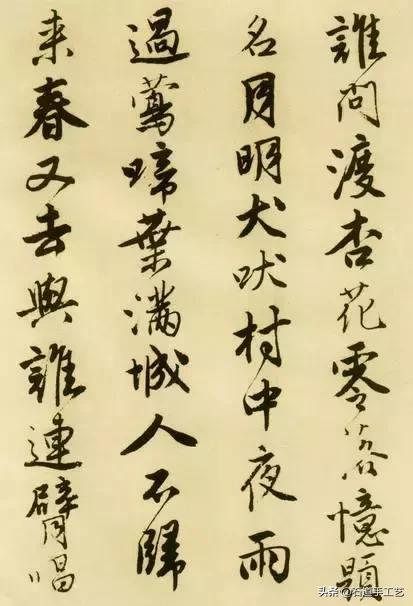 誰問渡杏花零落憶題
名月明犬吠村中夜雨
過鶯啼葉滿城人不歸
来春又去與誰連臂唱
头条 @石道手工艺